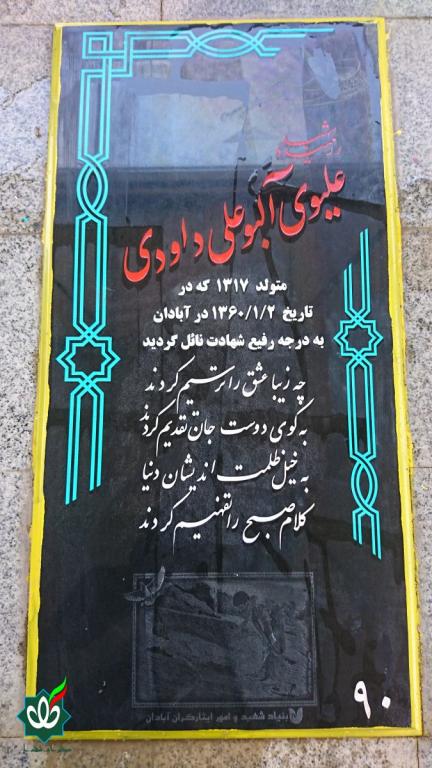 شهید
علیوی آلبوعلی داودی
متولد ۱۳۱۷ که در
تاریخ ۱۳۶۰/۱/۲ در آبادان
به درجه رفیع شهادت نائل گردید
چه زیبا عشق را ترسیم کردند
به کوی دوست جان تقدیم کردند
به خیل ظلمت اندیشان دنیا
کلام صبح را تفهیم کردند
بنیاد شهید و امور ایثارگران آبادان
۹۰